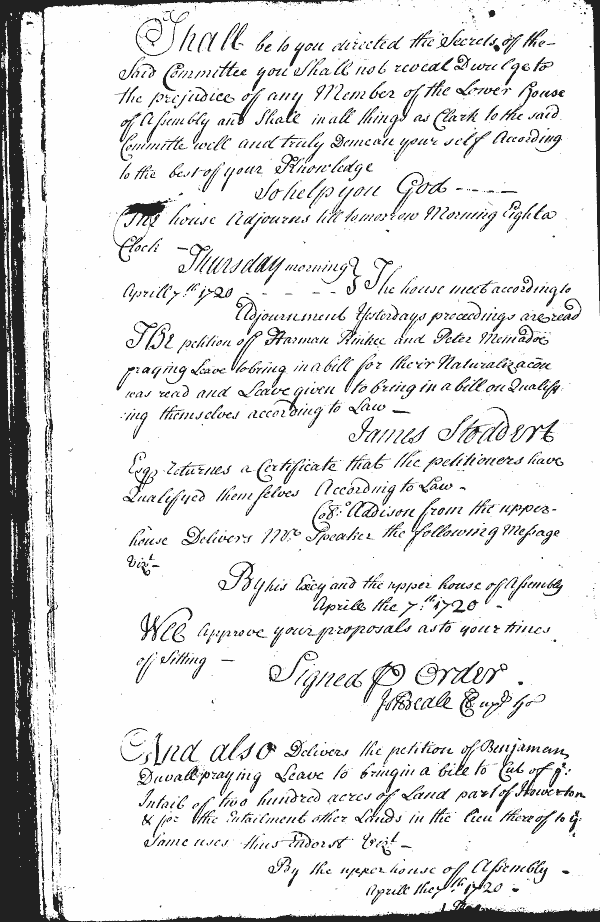 Shall be to you directed the Secrets of the
Said Committee you Shall not reveal Divulge to
the prejudice of any Member of the Lower house
of Assembly and Shall in all things as Clark to the said
Committe well and truly Demean your self According
to the best of your Knowledge
So help you God ----
The house Adjourns till tomorrow Morning Eight a
Clock —
Thursday morning
Aprill 7th 1720 - - - - - } The house meet according to
Adjournment Yesterdays preceedings are read
The petition off Harman and Peter
praying Leave to bring in a bill for their Naturalizacon
was read and Leave given to bring in a bill on Qualify
ing themselves according to Law —
James Stoddert
Esqr returnes a Certificate that the petitioners have
Qualifyed themselves According to Law -
Coll Addison from the upper-
house Delivers Mr Speaker the following Message
vizt-
By his Excy and the upper house of Assembly
Aprill the 7th 1720 -
Wee approve your proposals as to your times
off Sitting —
Signed P Order
Jo Beale Ho
And also Delivers the petition of Benjamin
Duvall praying Leave to bring in a bill to Cut of ye:
Intail of two hundred acres of Land part of Howerton
& for the Entailment other Lands in the lieu thereof to ye
Same uses thus Endorst vizt -
By the upper house off Assembly -
Aprill the 7th 1720 -